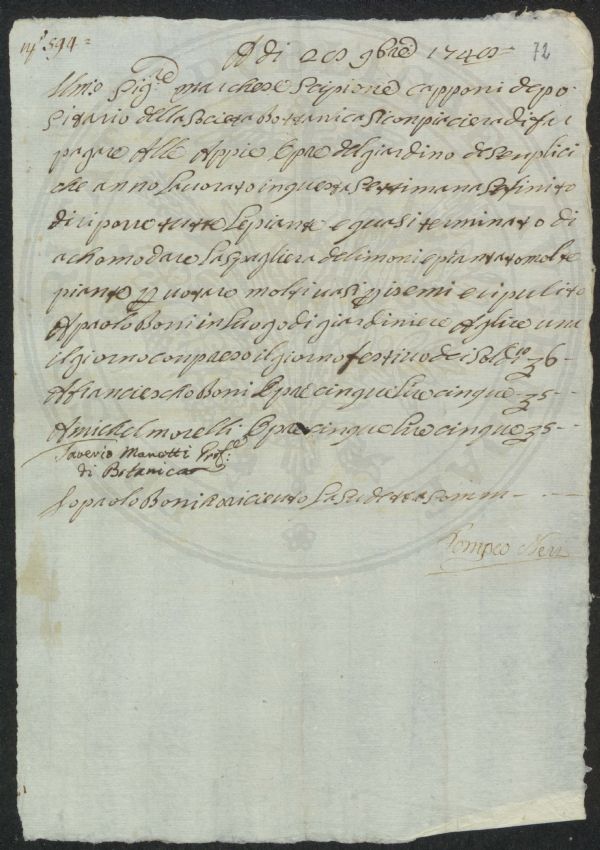 N.° 594=
A di 20 9bre 1740= 72
Sig.re Marchese Scipione Capponi depo-
sitario della Societa Bottanica si conpiacera di fa
pagare Alle Appie Opre del giardino de Senplici
che anno Lavorato in questa Settimana finito
di riporre tutte Le piante e quasi terminato di
achomodare La spagliera de limoni e piantato molte
piante e votare molti vasi semi e ripulito
A paolo Boni in Luogo di giardiniere A Lire una
il giorno conpreso il giorno festivo 6-
A francescho Boni Opre cinque Lire cinque 5-
A Michel morelli Opre cinque Lire cinque 5-
Saverio Manetti Prof.e
di Botanica
Io paolo Boni o riceuto La sudetta somm
Pompeo Neri